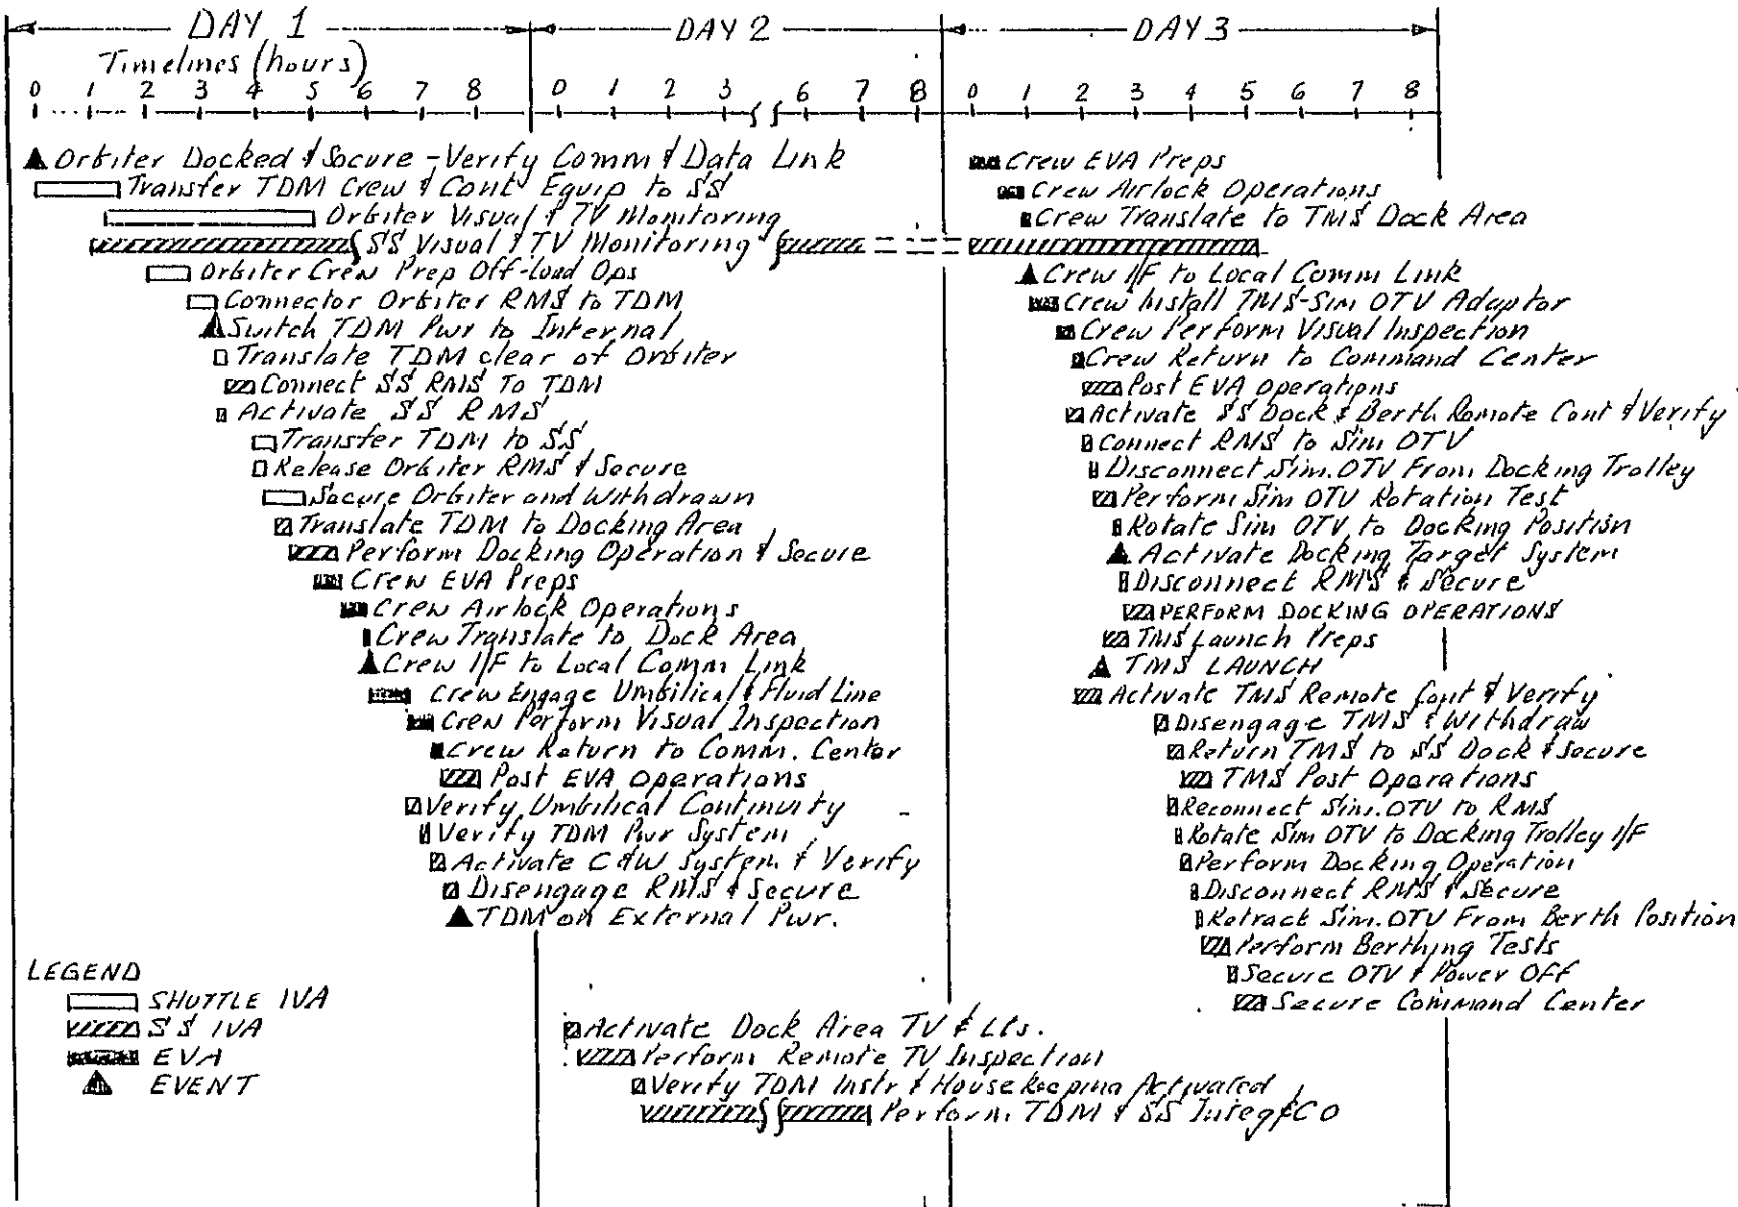 DAY 1 DAY 2 DAY 3
Timelines (hours)
0 1 2 3 4 5 6 7 8 0 1 2 3 6 7 8 0 1 2 3 4 5 6 7 8
Orbiter Docked & Secure - Verify Comm & Data Link
Transfer TDM Crew & Cont Equip to SS
Orbiter Visual & TV Monitoring
SS Visual & TV Monitoring
Orbiter Crew Prep Off-load Ops
Connector Orbiter RMS to TDM
Switch TDM Pwr to Internal
Translate TDM clear of Orbiter
Connect SS RMS To TDM
Activate SS RMS
Transfer TDM to SS
Release Orbiter RMS & Secure
Secure Orbiter and Withdrawn
Translate TDM to Docking Area
Perform Docking Operation & Secure
Crew EVA Preps
Crew Airlock Operations
Crew Translate to Dock Area
Crew I/F to Local Comm Link
Crew Engage Umbilical & Fluid Line
Crew Perform Visual Inspection
Crew Return to Comm. Center
Post EVA Operations
Verify Umbilical Continuity
Verify TDM Pwr System
Activate C&W System & Verify
Disengage RMS & Secure
TDM on External Pwr.
Activate Dock Area TV & Lts.
Perform Remote TV Inspection
Verify TDM Instr & Housekeeping Activated
Perform TDM & SS Integ & CO
Crew EVA Preps
Crew Airlock Operations
Crew Translate to TMS Dock Area
Crew I/F to Local Comm Link
Crew Install TMS-Sim OTV Adaptor
Crew Perform Visual Inspection
Crew Return to Command Center
Post EVA Operations
Activate SS Dock & Berth Remote Cont & Verify
Connect RMS to Sim OTV
Disconnect Sim. OTV From Docking Trolley
Perform Sim OTV Rotation Test
Rotate Sim OTV to Docking Position
Activate Docking Target System
Disconnect RMS & Secure
PERFORM DOCKING OPERATIONS
TMS Launch Preps
TMS LAUNCH
Activate TMS Remote Cont & Verify
Disengage TMS & Withdraw
Return TMS to SS Dock & Secure
TMS Post Operations
Reconnect Sim. OTV to RMS
Rotate Sim OTV to Docking Trolley I/F
Perform Docking Operation
Disconnect RMS & Secure
Retrack Sim. OTV From Berth Position
Perform Berthing Tests
Secure OTV & Power OFF
Secure Command Center
LEGEND
SHUTTLE IVA
SS IVA
EVA
EVENT